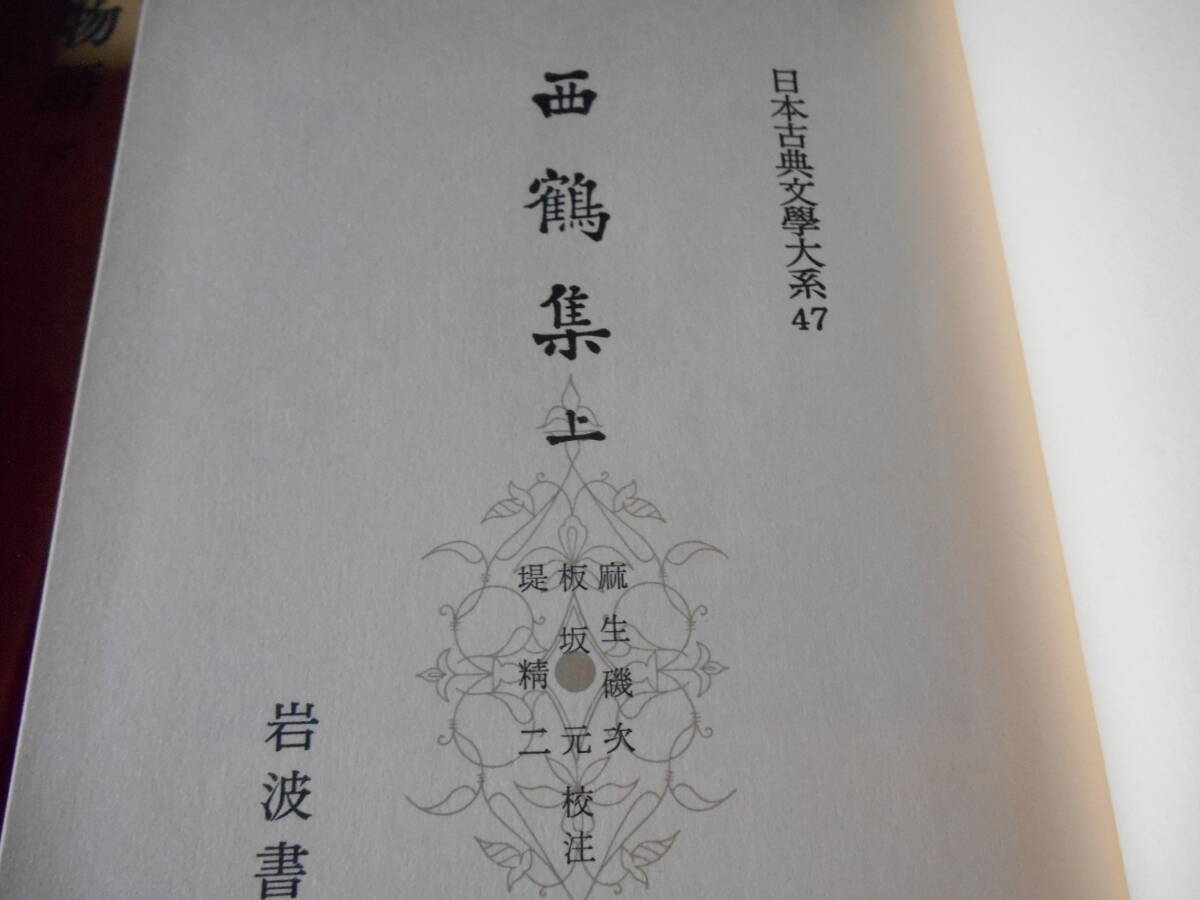 日本古典文學大系47
西鶴集上
麻生磯次
板坂元校注
堤精二
岩波書
物語下